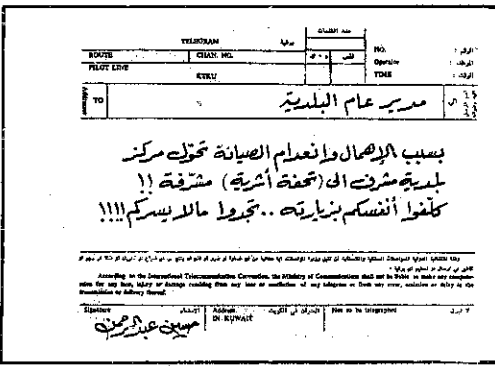 عدد الكلمات
TELEGRAM برقية
ROUTE CHAN. NO. NO. الرقم :
PILOT LINE Operator
TIME الوقت :
TO مدير عام البلدية
بسبب الإهمال وانعدام الصيانة تحوّل مركز
بلدية مشرف الى (تحفة أثرية) مشرّفة !!
كلّفوا أنفسكم بزيارته .. تجدوا مالا يسركم !!!!
According to the International Telecommunication Convention, the Ministry of Communications shall not be liable to make any compensation for any loss, injury or damage resulting from any loss or mutilation of any telegram or from any error, omission or delay in the transmission or delivery thereof.
Signature الامضاء Address IN KUWAIT العنوان في الكويت Not to be telegraphed لا تبرق
حسين عبدالرحمن